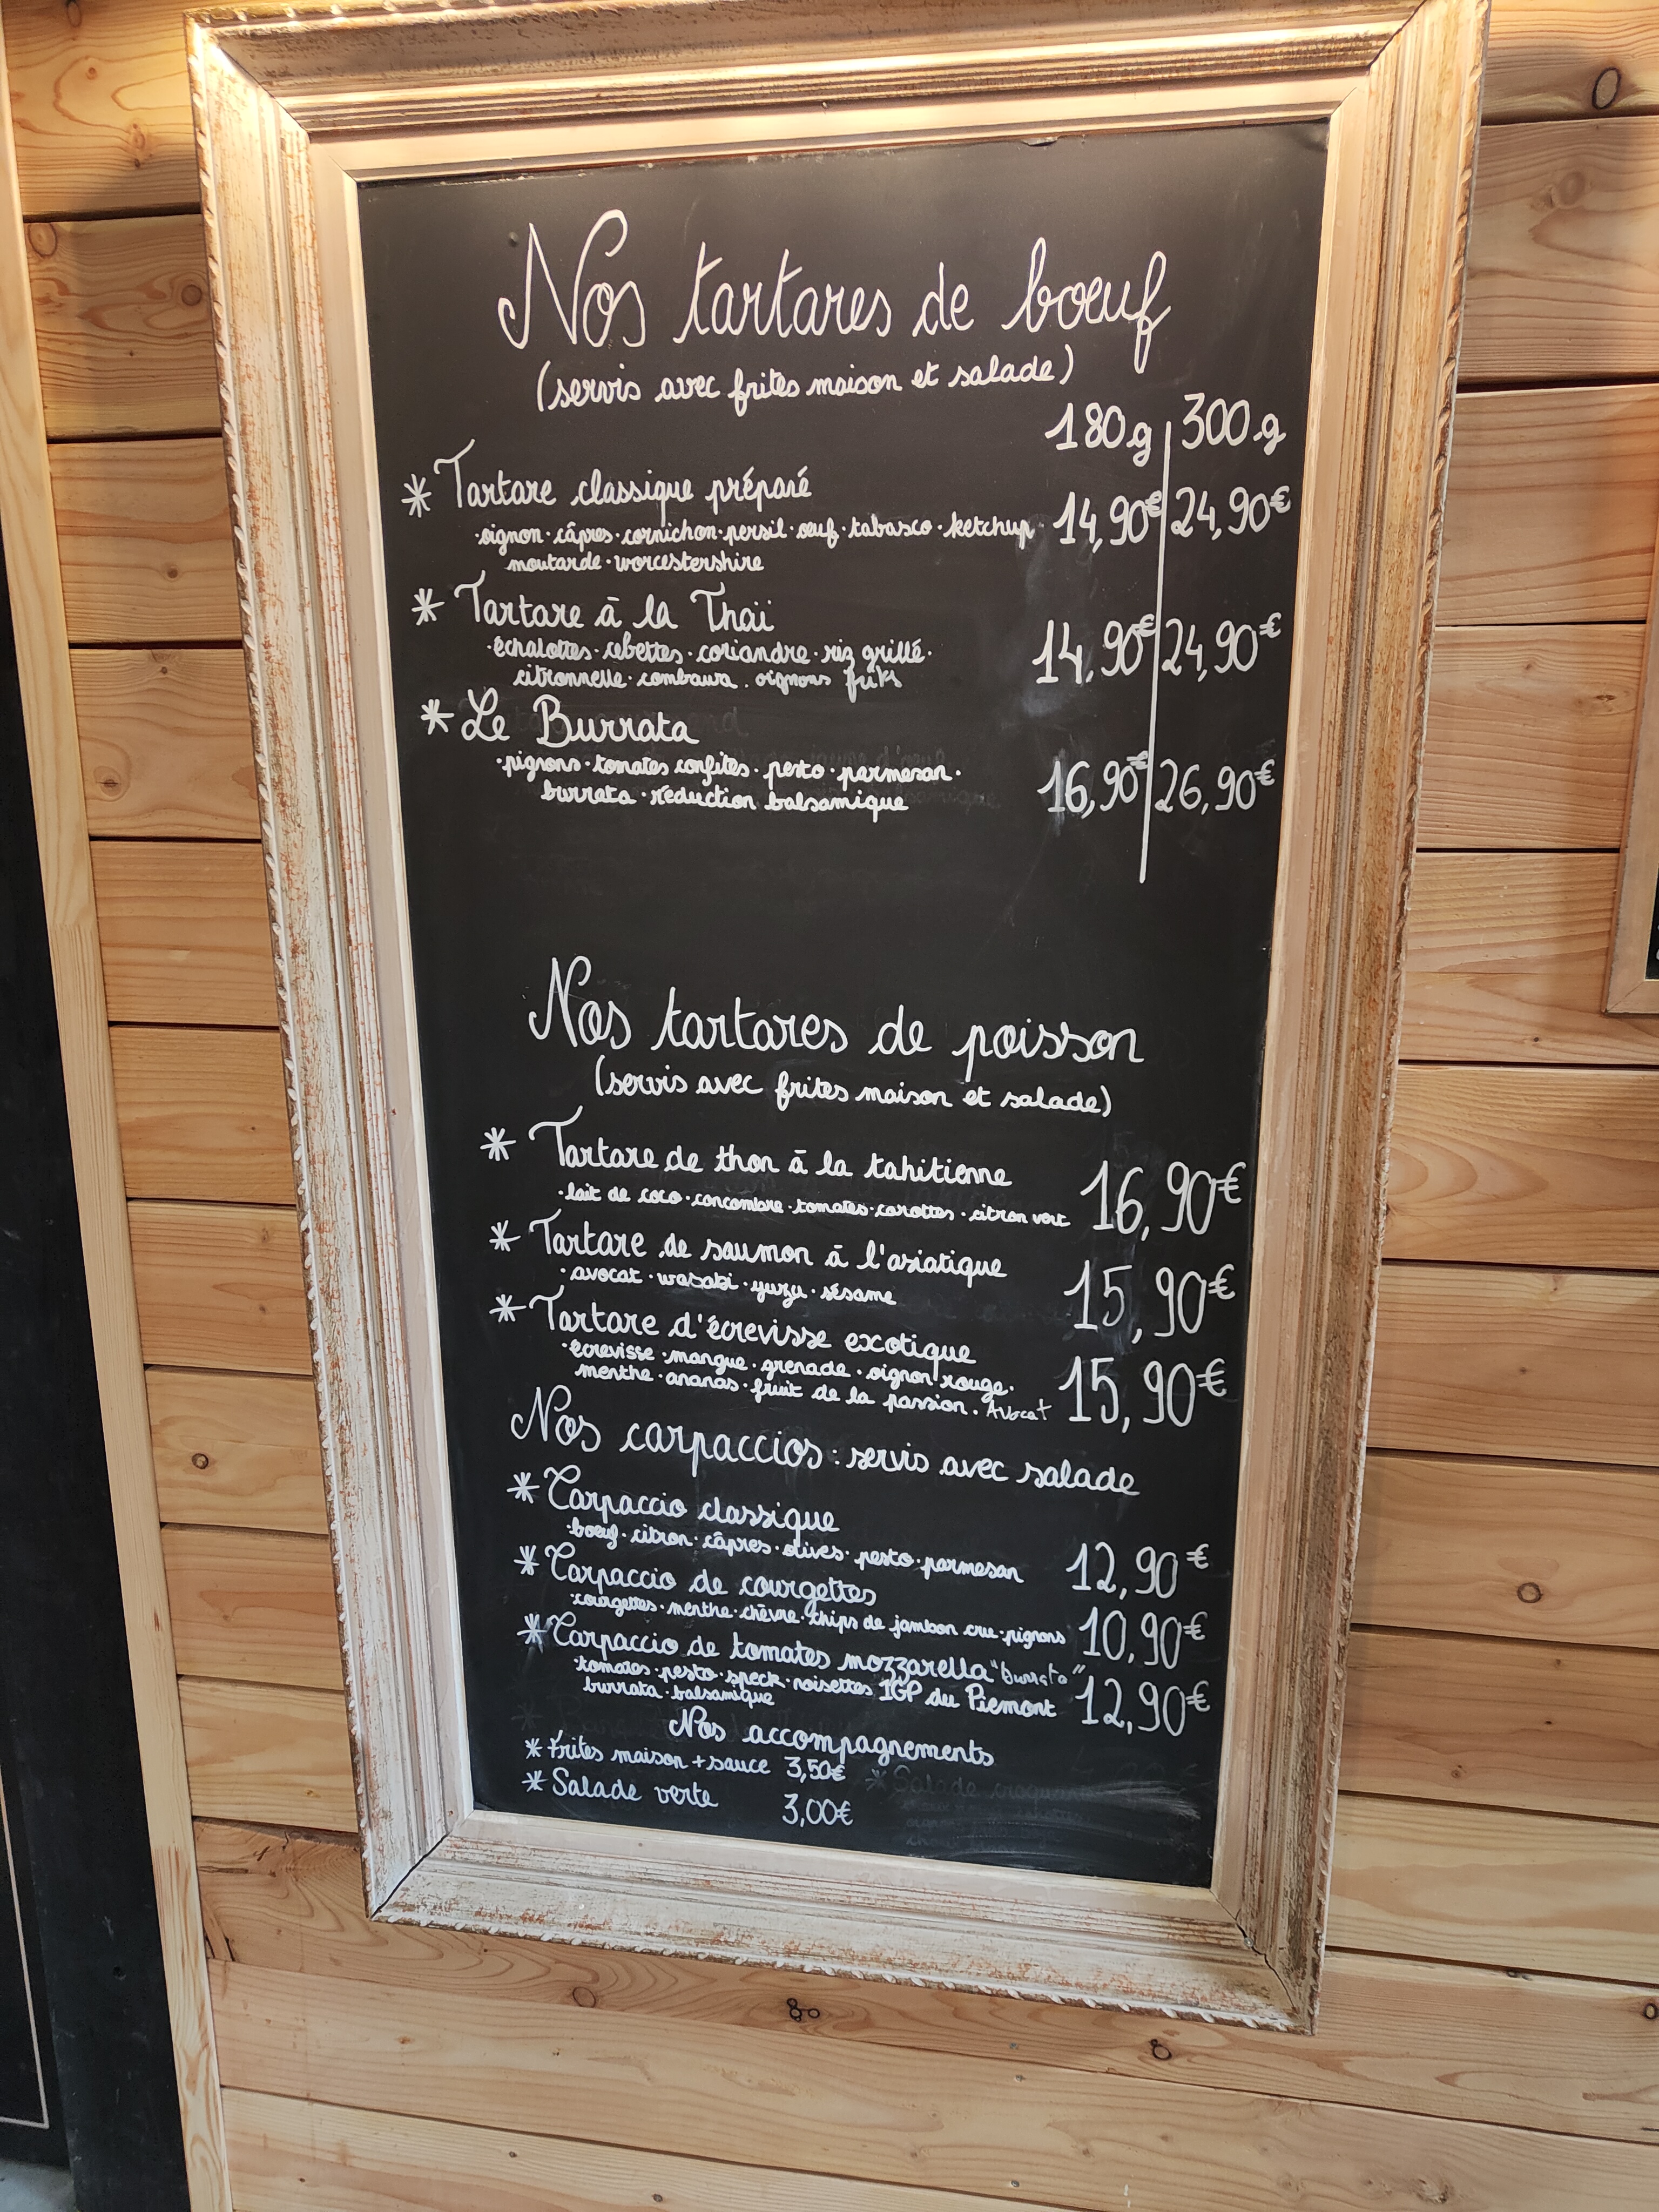 Nos tartares de bœuf
(servis avec frites maison et salade)
180g 300g
* Tartare classique préparé
·oignon·câpres·cornichon·persil·œuf·tabasco·ketchup· 14,90€ 24,90€
moutarde·worcestershire
* Tartare à la Thaï
·échalottes·cebettes·coriandre·riz grillé· 14,90€ 24,90€
citronnelle·combawa. oignons frits
* Le Burrata
·pignons·tomates confites·pesto·parmesan· 16,90€ 26,90€
burrata·réduction balsamique
Nos tartares de poisson
(servis avec frites maison et salade)
* Tartare de thon à la tahitienne 16,90€
·lait de coco·concombre·tomates·carottes·citron vert
* Tartare de saumon à l'asiatique 15,90€
·avocat·wasabi·yuzu·sésame
* Tartare d'écrevisse exotique
·écrevisse·mangue·grenade·oignon rouge· 15,90€
menthe·ananas·fruit de la passion. Avocat
Nos carpaccios : servis avec salade
* Carpaccio classique
·bœuf·citron·câpres·olives·pesto·parmesan 12,90€
* Carpaccio de courgettes
·courgettes·menthe·chèvre·chips de jambon cru·pignons 10,90€
* Carpaccio de tomates mozzarella "burrata"
·tomates·pesto·speck·noisettes IGP du Piemont 12,90€
burrata·balsamique
Nos accompagnements
* Frites maison + sauce 3,50€
* Salade verte 3,00€